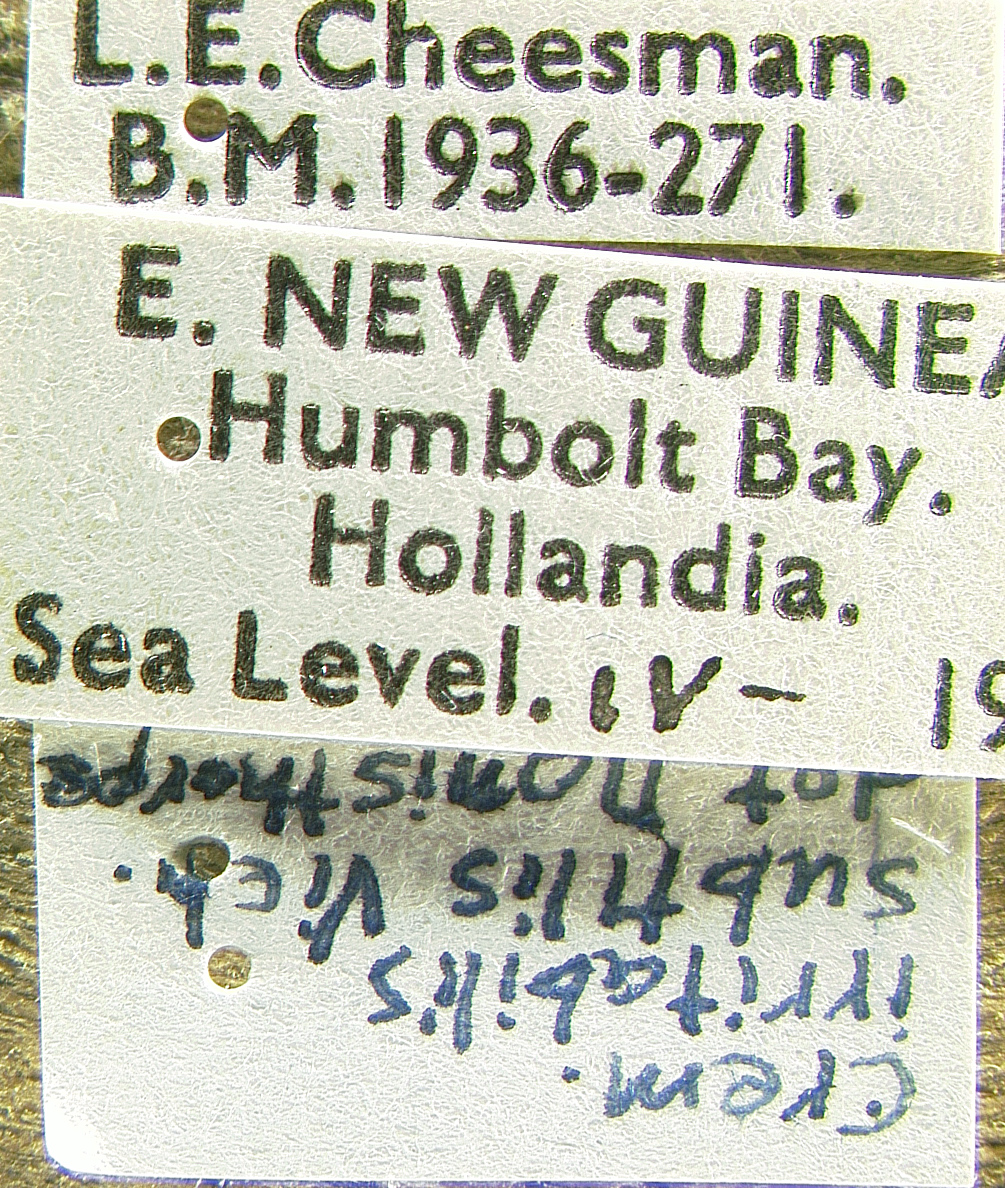 L.E. Cheesman.
B.M. 1936-271.
E. NEW GUINEA
Humbolt Bay.
Hollandia.
Sea Level. IV- 19
Crem.
irritabilis
subtilis Vieh.
det Donisthorpe